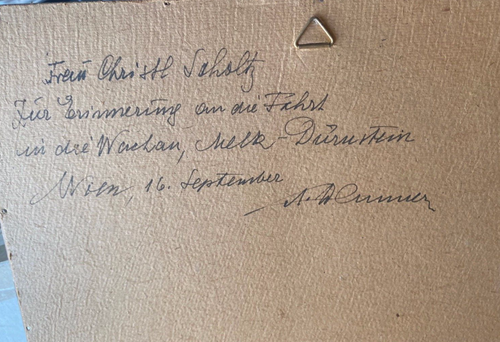 Frau Christl Scholtz
Zur Erinnerung an die Fahrt
in die Wachau, Melk-Dürnstein
Wien, 16. September